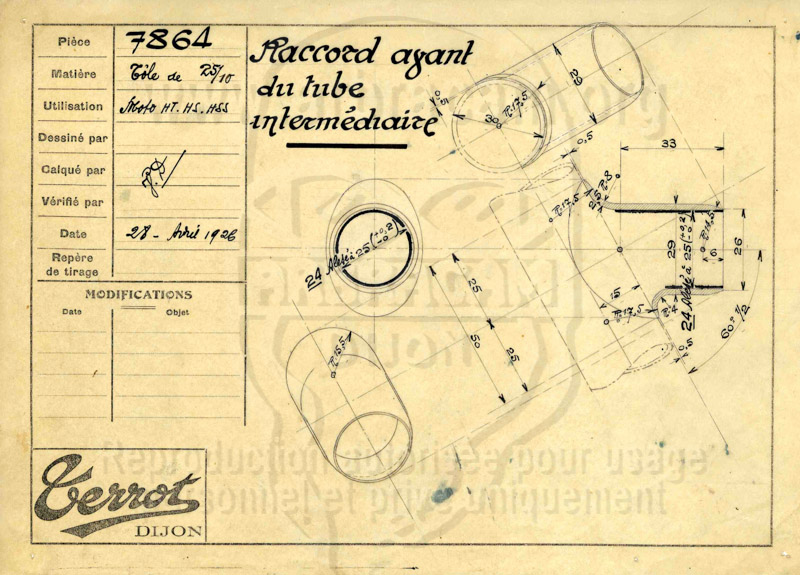 Pièce 7864
Matière Tôle de 25/10
Utilisation Moto HT. HS. HSS
Dessiné par
Calqué par
Vérifié par
Date 28 - Avril 1926
Repère
de tirage
MODIFICATIONS
Date Objet
Terrot
DIJON
Raccord ayant
du tube
intermédiaire
29
0,5
30
R.17,5
0,5
33
R.17,5
29
26
24 Alésé à 25 (+0,2 -0)
6
15
R.17,5
R.4
0,5
60° 1/2
24 Alésé à 25 (+0,2 -0)
25
50
25
R.15,5
DIJON
Reproduction autorisée pour usage
personnel et privé uniquement